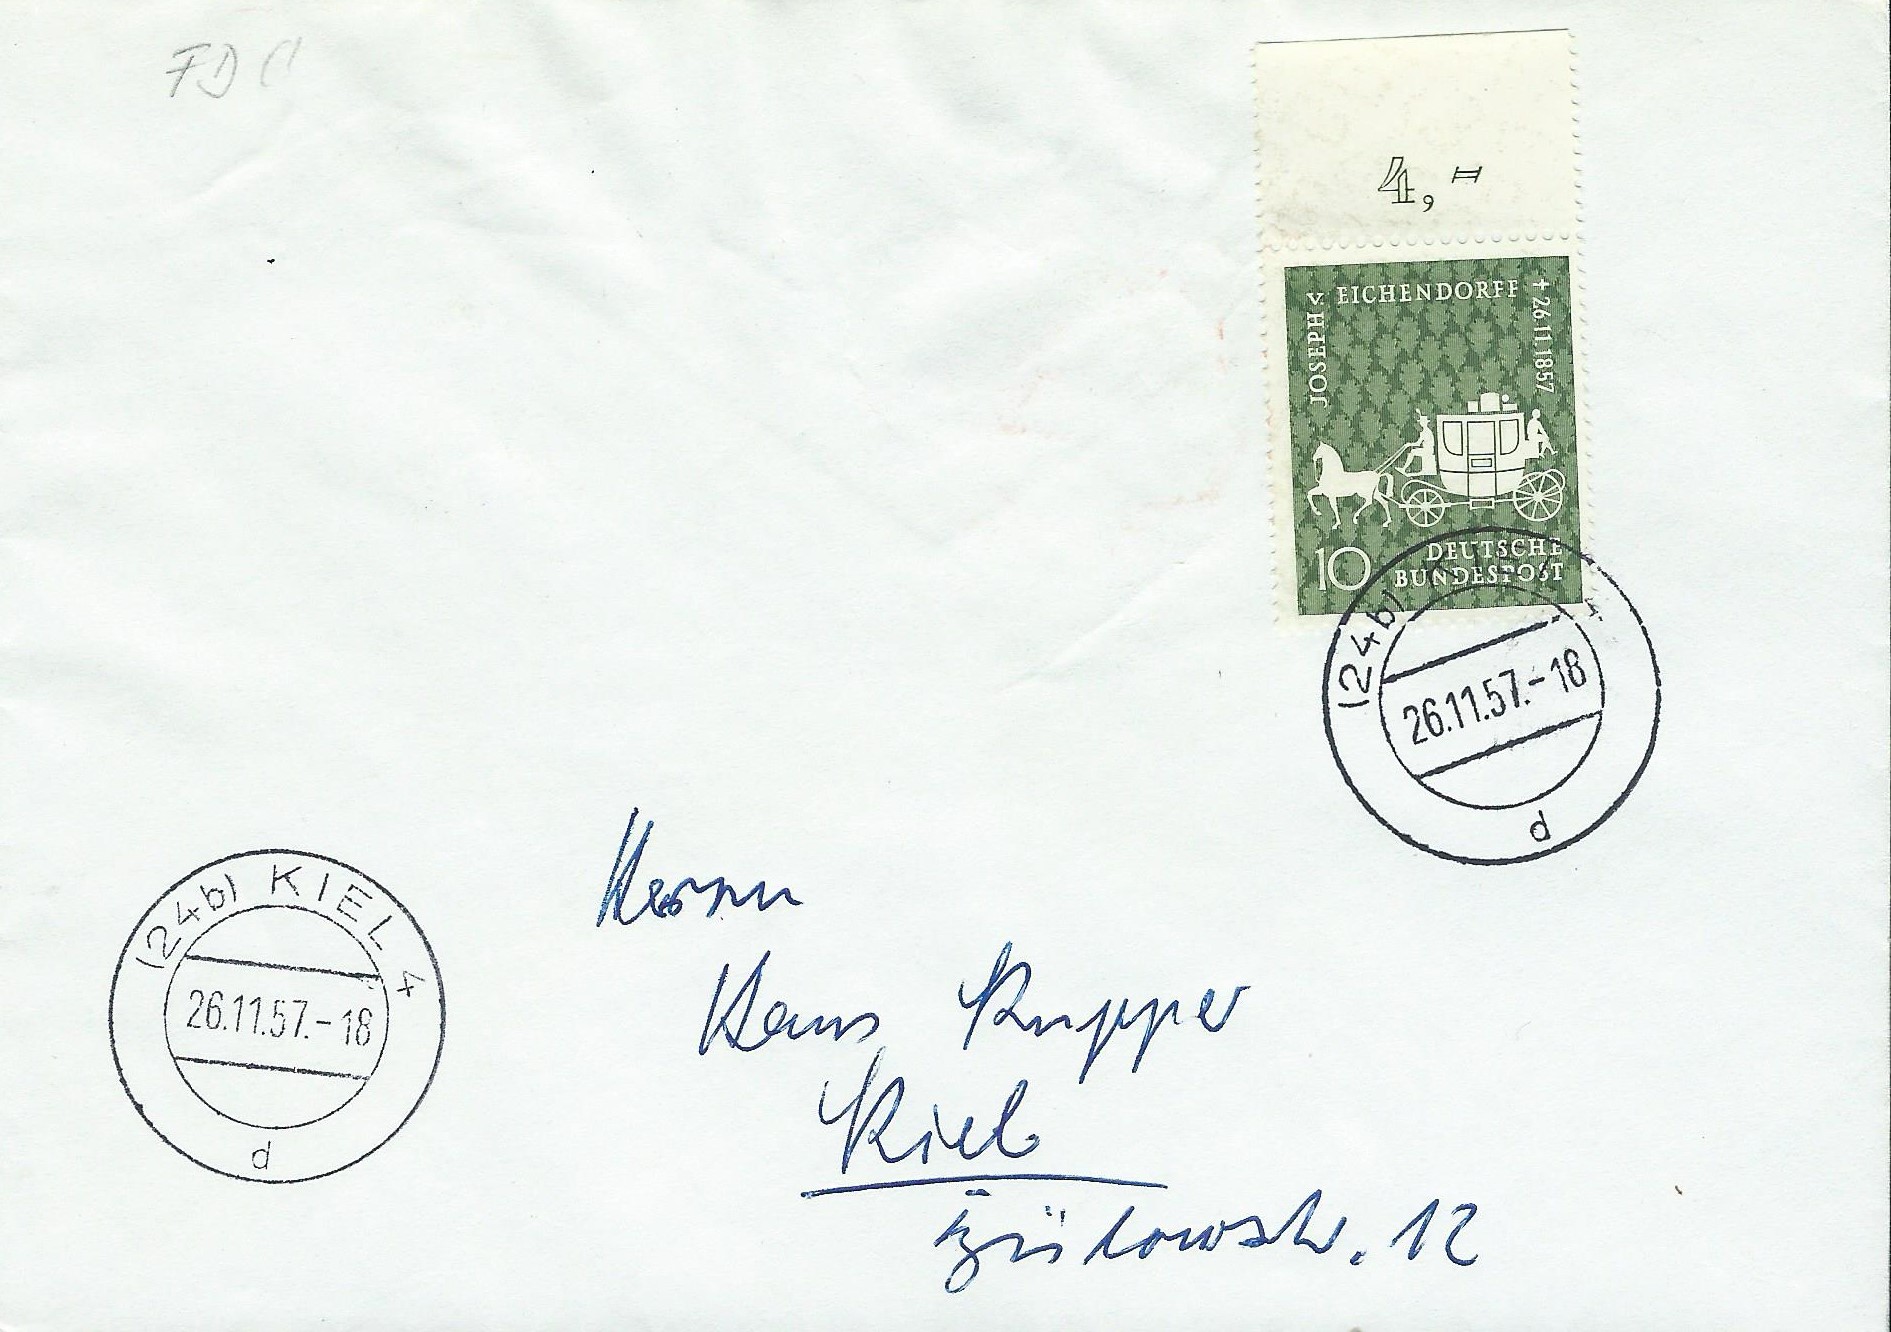 FDC
4,=
JOSEPH v. EICHENDORFF + 26.11.1857
10 DEUTSCHE
BUNDESPOST
(24b) KIEL 4
26.11.57.-18
d
Herrn
Hans Kupper
Kiel
(24b) KIEL 4
26.11.57.-18
d
12